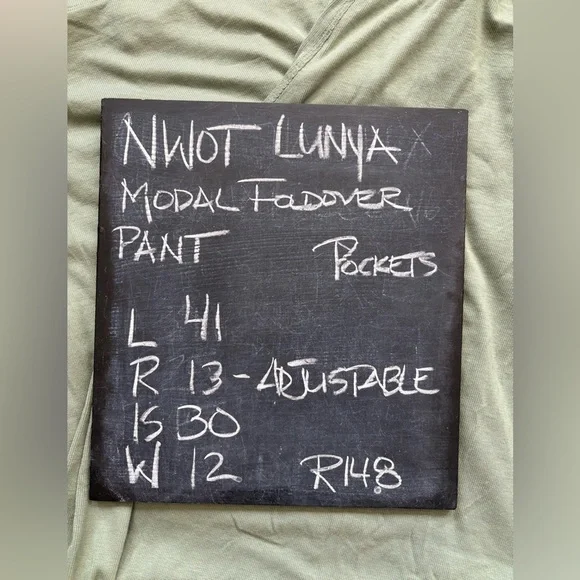 NWOT LUNYA
MODAL FOLDOVER
PANT POCKETS
L 41
R 13 - ADJUSTABLE
IS 30
W 12 R148